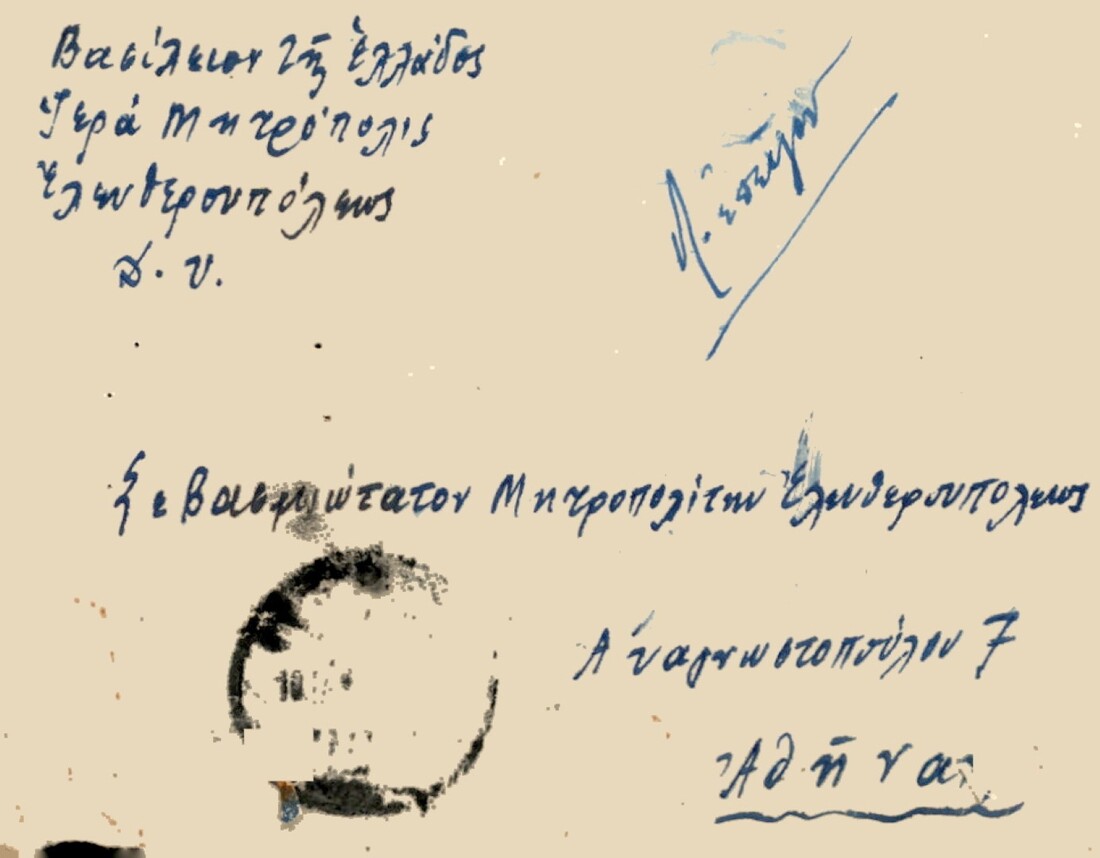 Βασίλειον τῆς Ἑλλάδος
Ἱερά Μητρόπολις
Ἐλευθερουπόλεως
δ. υ.
Λ. ἐπεῖγον
Σεβασμιώτατον Μητροπολίτην Ἐλευθερουπόλεως
Ἀναγνωστοπούλου 7
Ἀθῆνας
10